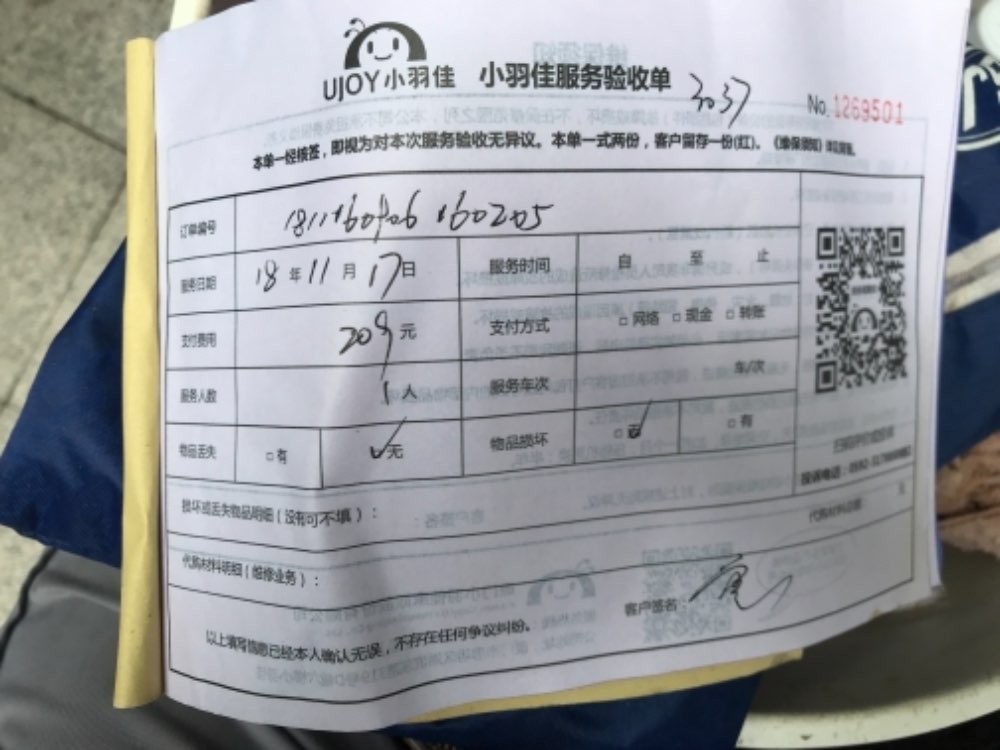 UJOY小羽佳 小羽佳服务验收单 3037
No. 1269501
本单一经核签，即视为对本次服务验收无异议。本单一式两份，客户留存一份(红)。
订单编号
服务日期 18 年 11 月 17 日 服务时间 自 至 止
支付费用 209 元 支付方式 □ 网络 □ 现金 □ 转账
服务人数 1 人 服务车次 车/次
物品丢失 □ 有 ✓无 物品损坏 □ ✓ □ 有
损坏或丢失物品明细（没有可不填）：
代购材料总额 元
代购材料明细（维修业务）：
客户签名
以上填写信息已经本人确认无误，不存在任何争议纠纷。